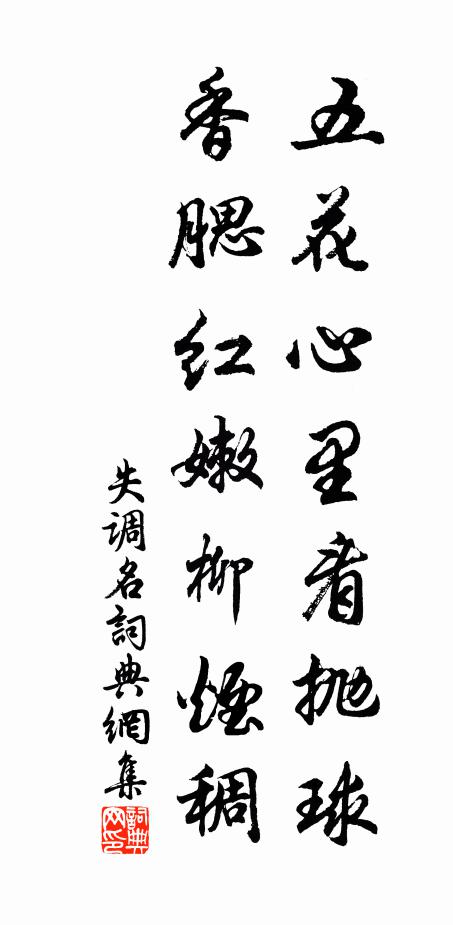 五花心里看抛球
香腮红嫩柳煙稠
失调名詞典網集
詞典网印